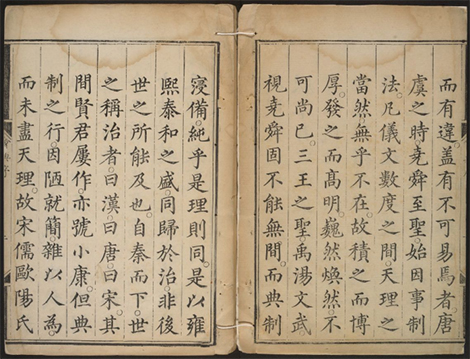 而有違。盖有不可易焉者。唐
虞之時。堯舜至聖。始因事制
法。凡儀文數度之間。天理之
當然。無乎不在。故積之而博
厚。發之而高明。巍然煥然。不
可尚已。三王之聖。禹湯文武
視堯舜固不能無間。而典制
寖備。純乎是理則同。是以雍
熙泰和之盛。同歸於治。非後
世之所能及也。自秦而下。世
之稱治者。曰漢。曰唐。曰宋。其
間賢君屢作。亦號小康。但典
制之行。因陋就簡。雜以人為。
而未盡天理。故宋儒歐陽氏